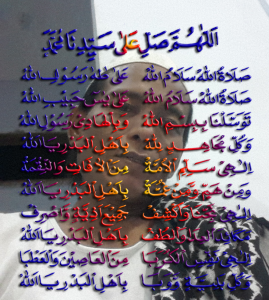 اَللّٰهُمَّ صَلِّ عَلىٰ سَيِّدِنَا مُحَمَّدٍ
صَلَاةُ اللهْ سَلَامُ اللهْ عَلىٰ طٰهَ رَسُوْلِ اللهْ
صَلَاةُ اللهْ سَلَامُ اللهْ عَلىٰ يٰسٓ حَبِيْبِ اللهْ
تَوَسَّلْنَا بِبِسْمِ اللهْ وَبِالْهَادِيْ رَسُوْلِ اللهْ
وَكُلِّ مُجَاهِدٍ لِلّٰهْ بِاَهْلِ الْبَدْرِ يَا اَللهْ
اِلٰهِيْ سَلِّمِ الْاُمَّةْ مِنَ الْاٰفَاتِ وَالنِّقْمَةْ
وَمِنْ هَمٍّ وَمِنْ غُمَّةْ بِاَهْلِ الْبَدْرِ يَا اَللهْ
اِلٰهِيْ وَاكْشِفْ جَمِيْعَ اَذِيَّةٍ وَاصْرِفْ
مَكَائِدَ الْعِدَا وَالْطُفْ بِاَهْلِ الْبَدْرِ يَا اَللهْ
اِلٰهِيْ نَفِّسِ الْكُرَبَا مِنَ الْعَاصِيْنَ وَالْعَطْبَا
وَكُلِّ بَلِيَّةٍ وَوَبَا بِاَهْلِ الْبَدْرِ يَا اَللهْ